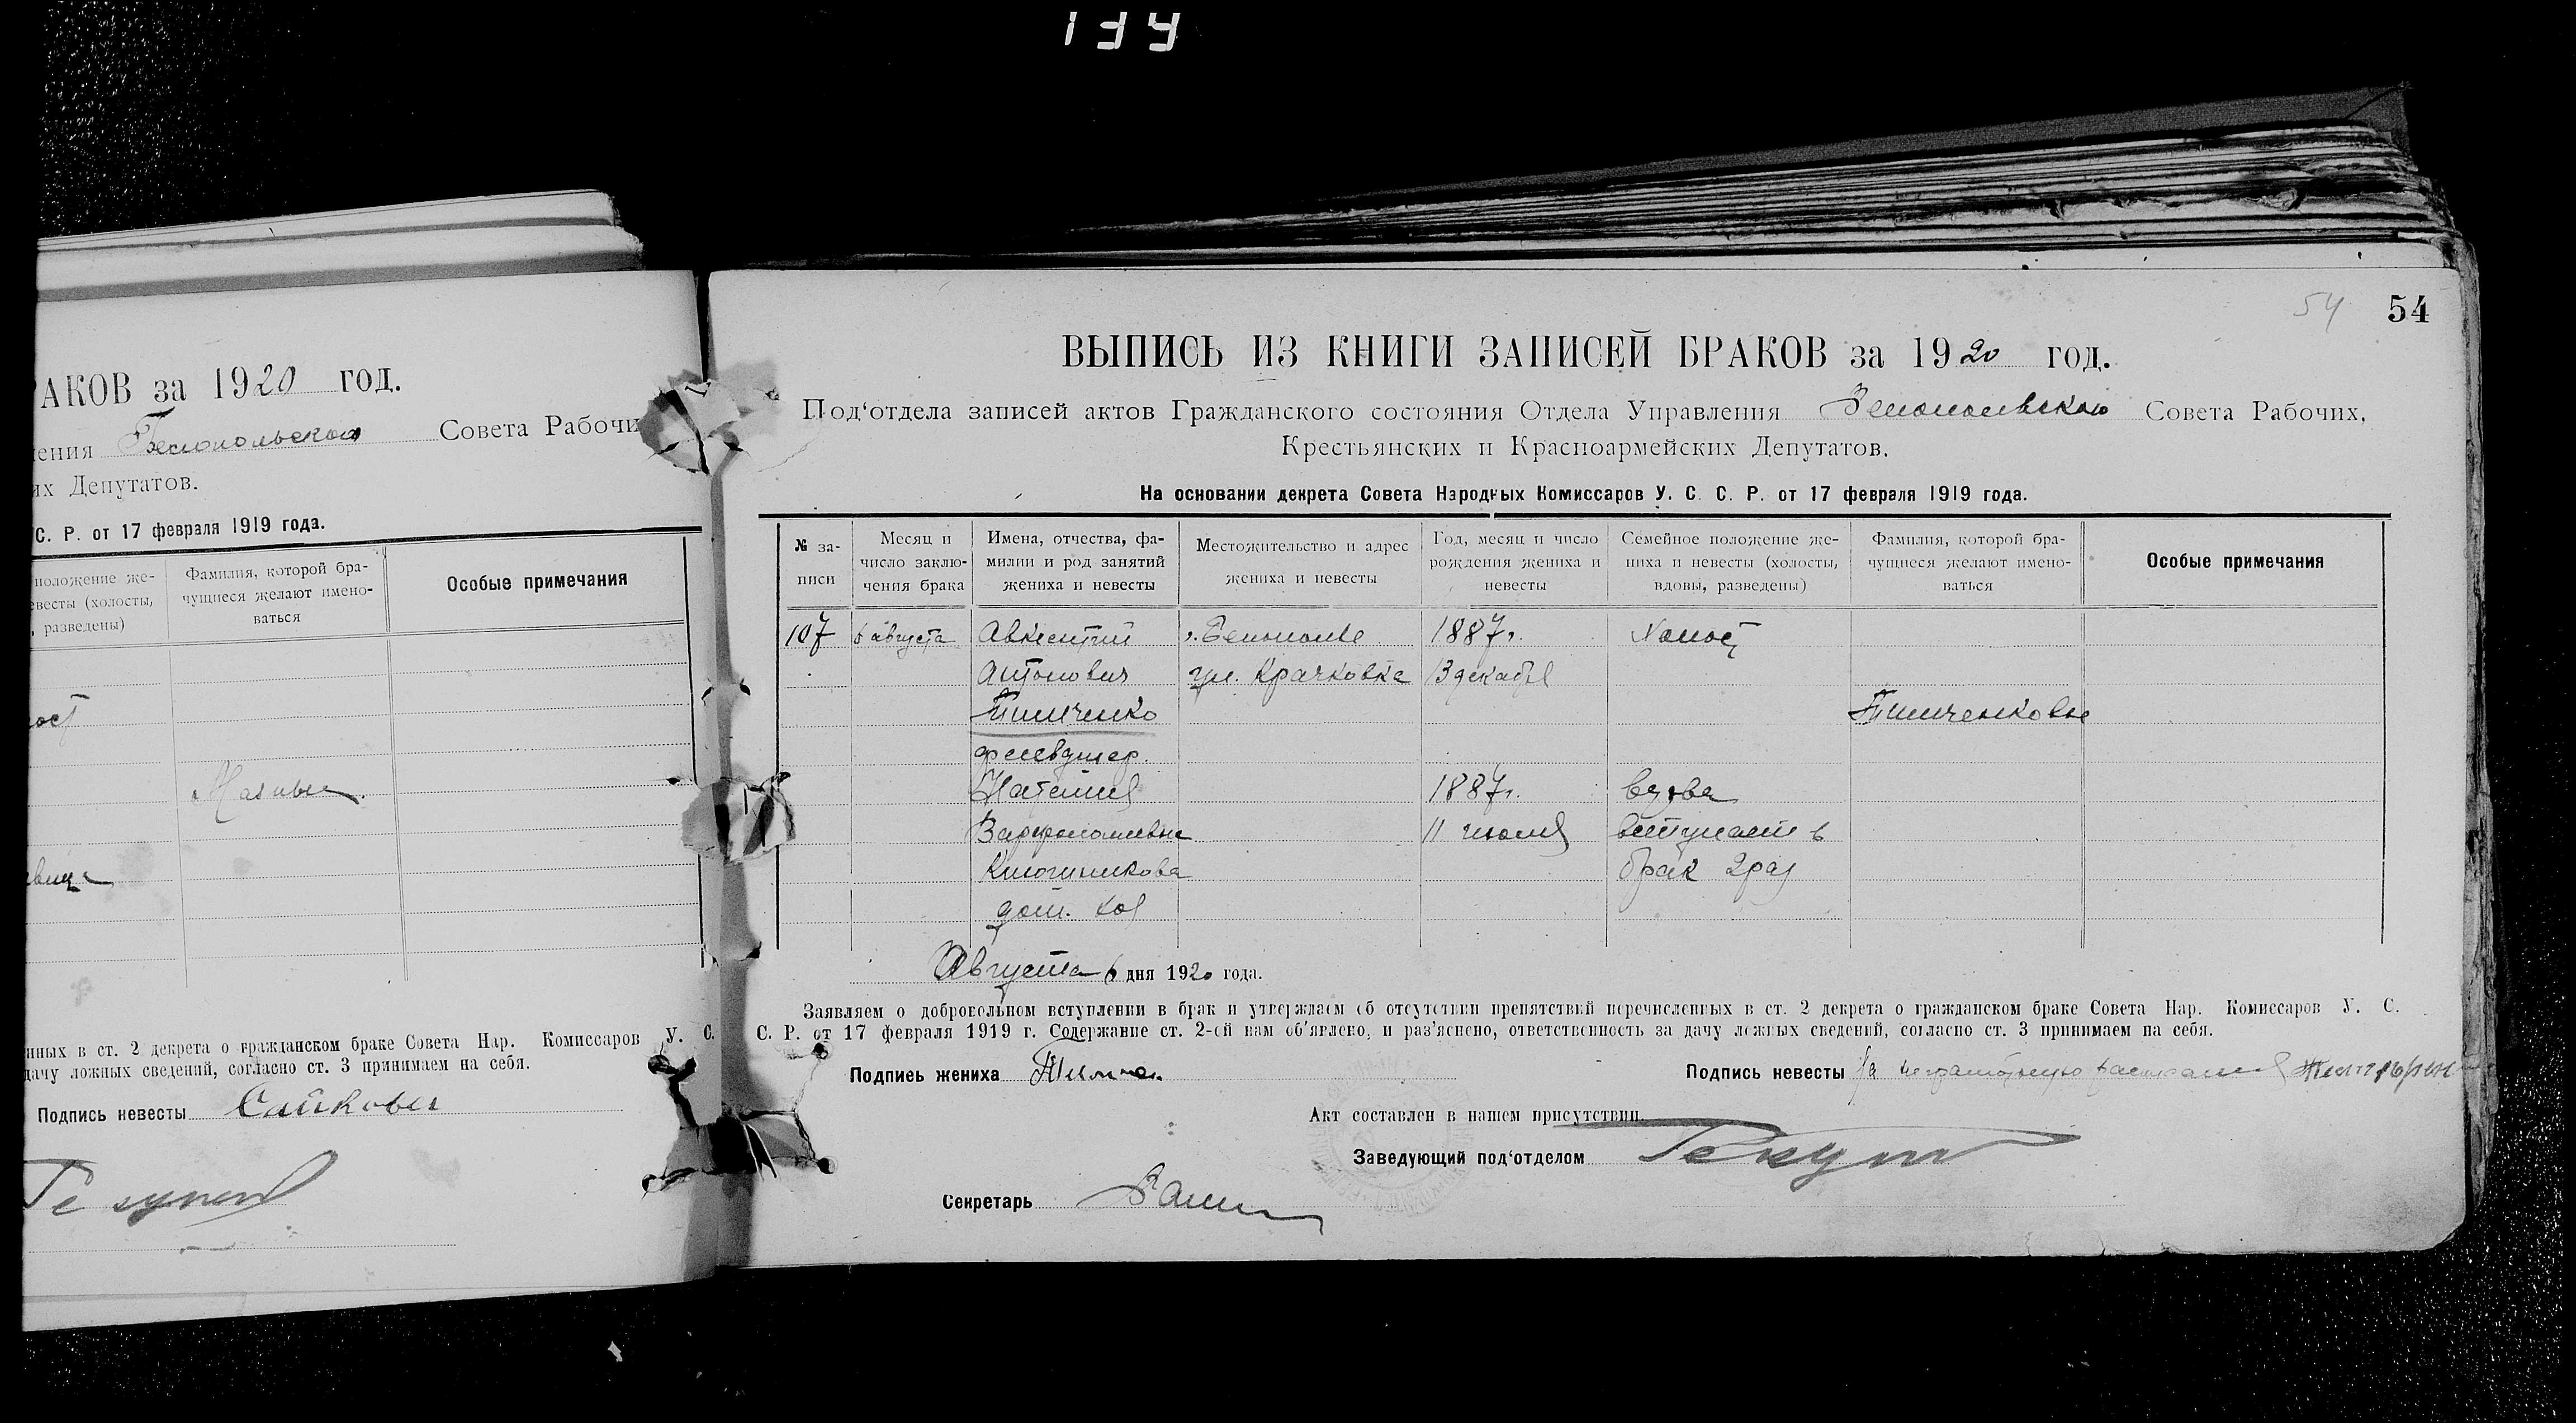 137
РАКОВ за 1920 год.
ения Белопольского Совета Рабочи
их Депутатов.
С. Р. от 17 февраля 1919 года.
положение же-
евесты (холосты,
, разведены)
Фамилия, которой бра-
чущиеся желают имено-
ваться
Особые примечания
ост
вица
нных в ст. 2 декрета о гражданском браке Совета Нар. Комиссаров У. С.
дачу ложных сведений, согласно ст. 3 принимаем на себя.
Подпись невесты
54 54
ВЫПИСЬ ИЗ КНИГИ ЗАПИСЕЙ БРАКОВ за 1920 год.
Под‘отдела записей актов Гражданского состояния Отдела Управления Белопольского Совета Рабочих,
Крестьянских и Красноармейских Депутатов.
На основании декрета Совета Народных Комиссаров У. С. С. Р. от 17 февраля 1919 года.
№ за-
писи
Месяц и
число заклю-
чения брака
Имена, отчества, фа-
милии и род занятий
жениха и невесты
Местожительство и адрес
жениха и невесты
Год, месяц и число
рождения жениха и
невесты
Семейное положение же-
ниха и невесты (холосты,
вдовы, разведены)
Фамилия, которой бра-
чущиеся желают имено-
ваться
Особые примечания
107 6 августа Авксентий г. Белополье 1887г. Холост
Антонович ул. Крачковка 13 декабя
Тимченко Тимченковы
фельдшер.
Наталия 1887г. вдова
Варфоломеевна 11 июля вступает в
Ключникова брак 2 раз
дом. хоз
Августа 6 дня 1920 года.
Заявляем о добровольном вступлении в брак и утверждаем об отсутствии препятствий перечисленных в ст. 2 декрета о гражданском браке Совета Нар. Комиссаров У. С.
С. Р. от 17 февраля 1919 г. Содержание ст. 2-ой нам об'явлено, и раз'яснено, ответственность за дачу ложных сведений, согласно ст. 3 принимаем на себя.
Подпись жениха Подпись невесты За неграмотную расписался
Акт составлен в нашем присутствии.
Заведующий под‘отделом
Секретарь